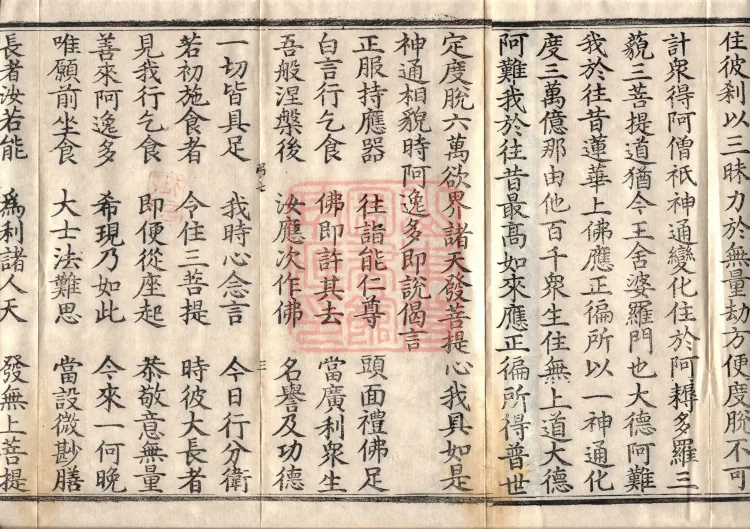 住彼剎以三昧力於無量劫方便度脫不可
計衆得阿僧祇神通變化住於阿耨多羅三
藐三菩提道猶今王舍婆羅門也大德阿難
我於往昔蓮華上佛應正徧所以一神通化
度三萬億那由他百千衆生住無上道大德
阿難我於往昔最高如來應正徧所得普世
定度脫六萬欲界諸天發菩提心我具如是
神通相貌時阿逸多即說偈言
正服持應器 往詣能仁尊 頭面禮佛足
白言行乞食 佛即許其去 當廣利衆生
吾般涅槃後 汝應次作佛 名譽及功德
三
一切皆具足 我時心念言 今日行分衛
若初施食者 令住三菩提 時彼大長者
見我行乞食 即便從座起 恭敬意無量
善來阿逸多 希現乃如此 今來一何晚
唯願前坐食 大士法難思 當設微尠膳
長者汝若能 爲利諸人天 發無上菩提